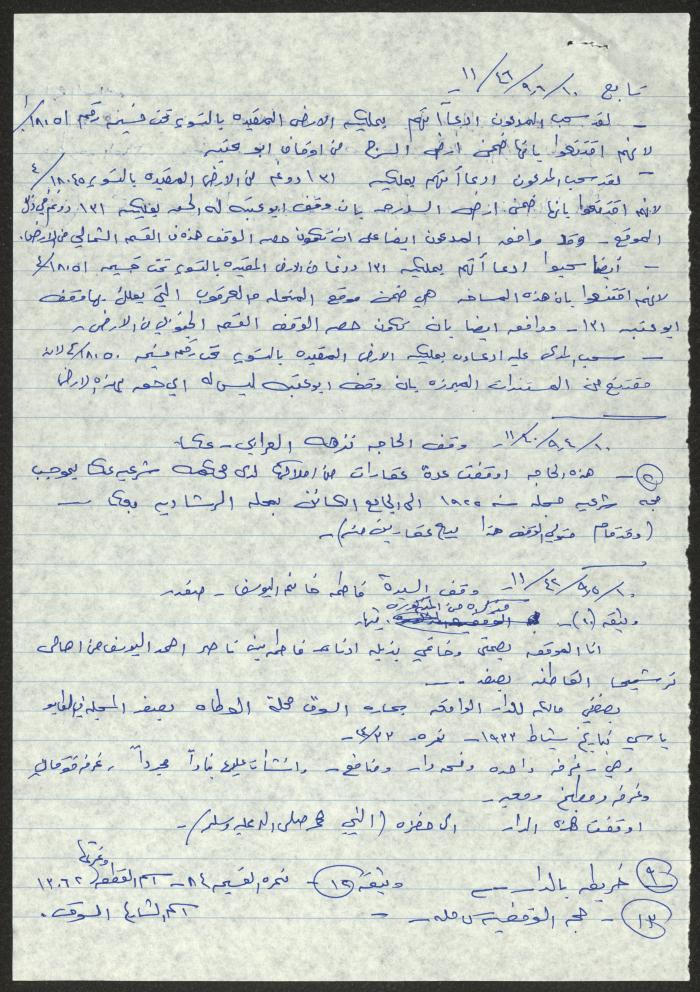 تابع ١١/٤٦/٩،٦/١٠-
- لقد سحب المدعون الادعاء انهم يملكية الارض المقيده بالتسوية تحت قسيمة رقم ١٨٠٥١/١
لانهم اقتنعوا بانها ضمن ارض السرج من اوقاف ابو عتبه
- لقد سحب المدعون ادعاءاتهم بملكية ١٣١ دونم من الارض المقيده بالتسوية ١٨٠٤٥/٤
لانهم اقتنعوا بانها ضمن ارض بان وقف ابو عتبه له الحق بملكية ١٣١ دونم في ذلك
الموقع - وقد وافق المدعون ايضا على ان تكون حصه الوقف هذه في القسم الشمالي من الارض.
- ايضا سحبوا ادعاءاتهم بملكية ١٣١ دونما من الارض المقيده بالتسويه تحت قسيمه ١٨٠٥١/٤
لانهم اقتنعوا بان هذه المساحه هي ضمن موقع المنحله والعرقوب التي يملك بها وقف
ابو عتبه ١٣١- ووافقوا ايضا بان تكون حصه الوقف القسم الجنوبي من الارض-
- سحب المدعى عليه ادعاءه بملكية الارض المقيده بالتسويه تحت رقم قسيمه ١٨٠٥٠/٤ لانه
مقتنع من المستندات المبرزه بان وقف ابو عتبه ليس له اي حق بهذه الارض
١١/٤٠/٩،٤/١٠- وقف الحاجه نزهه العرابي - عكا.
(٥) - هذه الحاجه اوقفت عدة عقارات من املاكها لدى محكمه شرعيه عكا بموجب
حجه شرعيه مسجله سنه ١٩٢٥ الى الجامع الكائن بمحله الرشاديه بعكا -
(وقد قام متولي الوقف هذا ببيع عقارين منه)-
١١/٤٢/٩،٥/١٠- وقف السيدة فاطمه خانم اليوسف - صفد
مذكرة من المذكوره
وثيقه (١٠)- فيها.
انا الموقعه بصمتي وخاتمي بذيله ادناه فاطمه بنت ناصر احمد اليوسف من اهالي
ترشيحا القاطنه بصفد -
بصفتي مالكه للدار الواقعه بحاره السوق محلة الوطاه بصفد المسجله في الطابو
باسمي بتاريخ شباط ١٩٣٢- نمره ٣٢/-
وهي - غرفه واحده وفسحه دار ومنافع - وانشأت عليها بناءاً مجدداً. غرفه فوقاني
وغرفه ومطبخ وممر -
اوقفت هذه الدار الى حضرة (النبي محمد صلى الله عليه وسلم)-
وغيرها
(٩) خريطه بالدار - وثيقه (١٢)- نمره القسيمه ٨٤- اسم القطعه ١٣٠٦٢
(١٣) - حجه الوقفيه كامله - - اسم الشارع السوق.